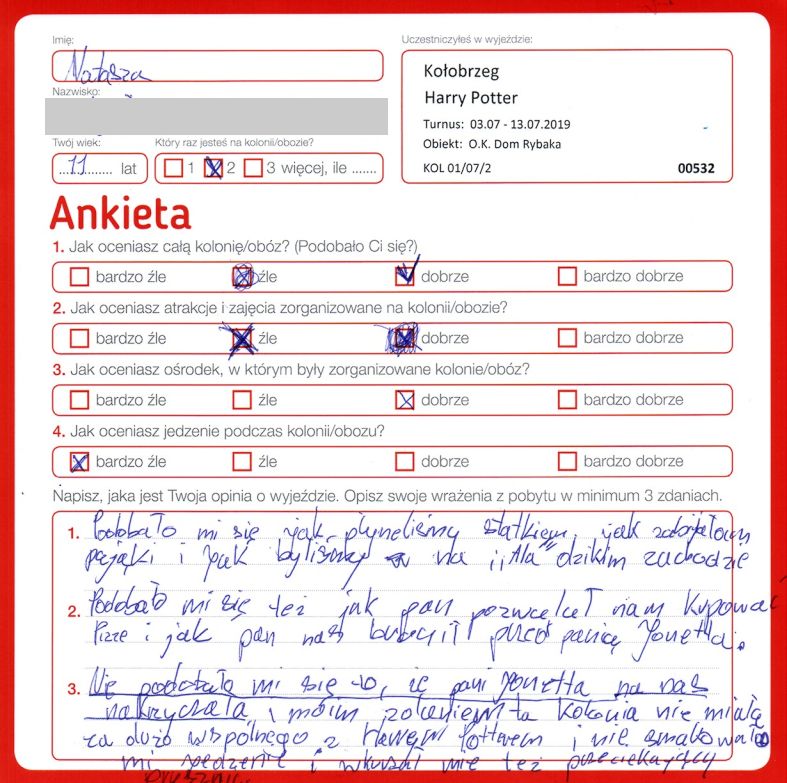 Imię:
Natasza
Nazwisko:
Twój wiek:
Który raz jesteś na kolonii/obozie?
...11....... lat
1 2 3 więcej, ile .......
Uczestniczyłeś w wyjeździe:
Kołobrzeg
Harry Potter
Turnus: 03.07 - 13.07.2019
Obiekt: O.K. Dom Rybaka
KOL 01/07/2 00532
Ankieta
1. Jak oceniasz całą kolonię/obóz? (Podobało Ci się?)
bardzo źle źle dobrze bardzo dobrze
2. Jak oceniasz atrakcje i zajęcia zorganizowane na kolonii/obozie?
bardzo źle źle dobrze bardzo dobrze
3. Jak oceniasz ośrodek, w którym były zorganizowane kolonie/obóz?
bardzo źle źle dobrze bardzo dobrze
4. Jak oceniasz jedzenie podczas kolonii/obozu?
bardzo źle źle dobrze bardzo dobrze
Napisz, jaka jest Twoja opinia o wyjeździe. Opisz swoje wrażenia z pobytu w minimum 3 zdaniach.
1. Podobało mi się jak płyneliśmy statkiem, jak zabijałam
pająki i jak byliśmy na dzikim zachodzie
2. Podobało mi się też jak pan pozwalał nam kupować
Pizze i jak pan nas bronił przed panią
3. Nie podobało mi się to, że pani na nas
nakrzyczała i moim zdaniem ta kolonia nie miała
za dużo wspólnego z Harrym Potterem i nie smakowało
mi jedzenie i wkurzał mnie też przeciekający
prysznic.